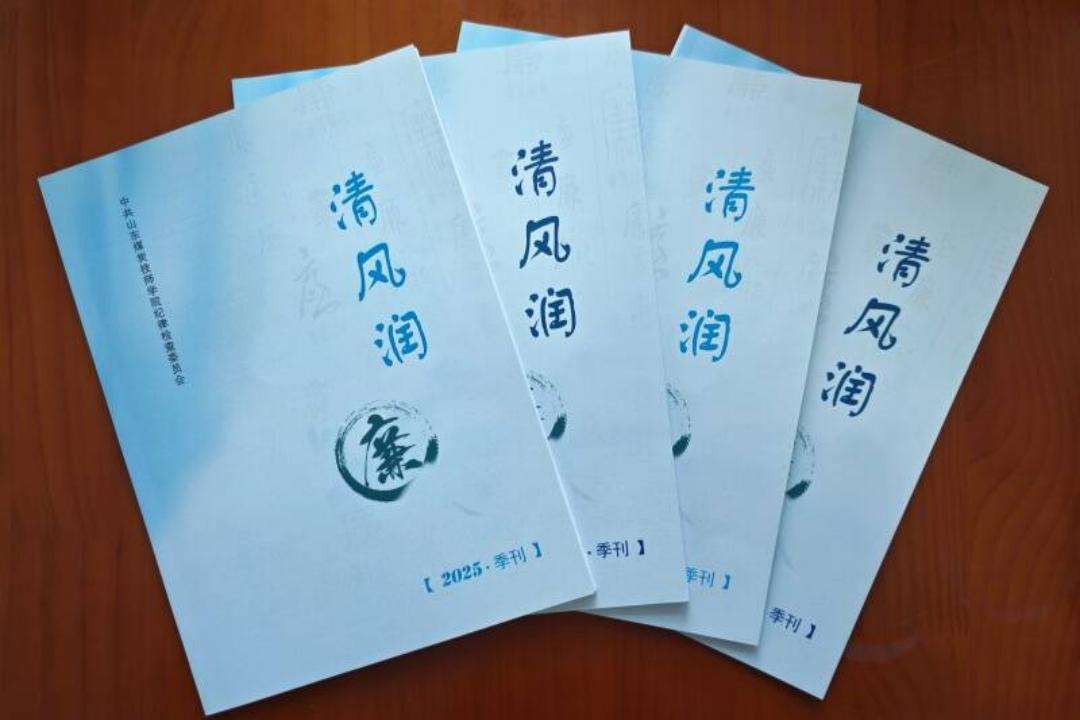 中共山东煤炭技师学院纪律检查委员会
清风润
廉
【 2025 · 季刊 】
清风润
· 季刊 】
清风润
季刊 】
清风润
季刊 】